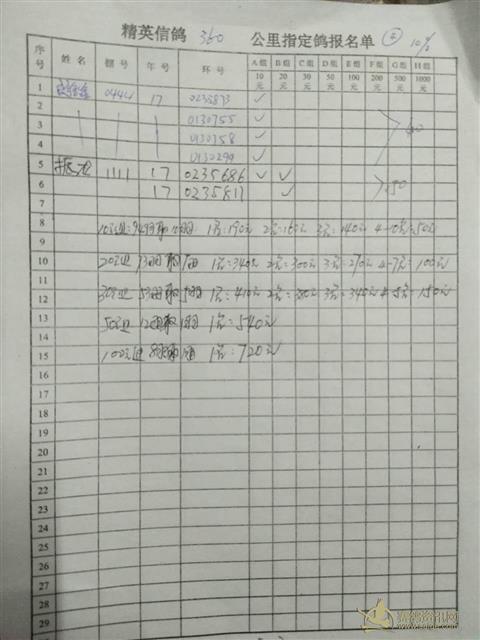 精英信鸽 360 公里指定鸽报名单 ④ 10%
序号 姓名 棚号 年号 环号 A组 10元 B组 20元 C组 30元 D组 50元 E组 100元 F组 200元 G组 500元 H组 1000元
1 0444 17 0235873 ✓
2 0130755 ✓
3 0130358 ✓
4 0130299 ✓ 40
5 振龙 1111 17 0235686 ✓ ✓
6 17 0235811 ✓ 50
7
8 10元组:94羽取10羽 1名:190元 2名:160元 3名:140元 4-10名:50元
9
10 20元组 73羽取7羽 1名:340元 2名:300元 3名:270元 4-7名:100元
11
12 30元组 53羽取5羽 1名:410元 2名:380元 3名:340元 4-5名:150元
13 50元组 12羽取1羽 1名:540元
14
15 100元组 8羽取1羽 1名:720元
16
17
18
19
20
21
22
23
24
25
26
27
28
29